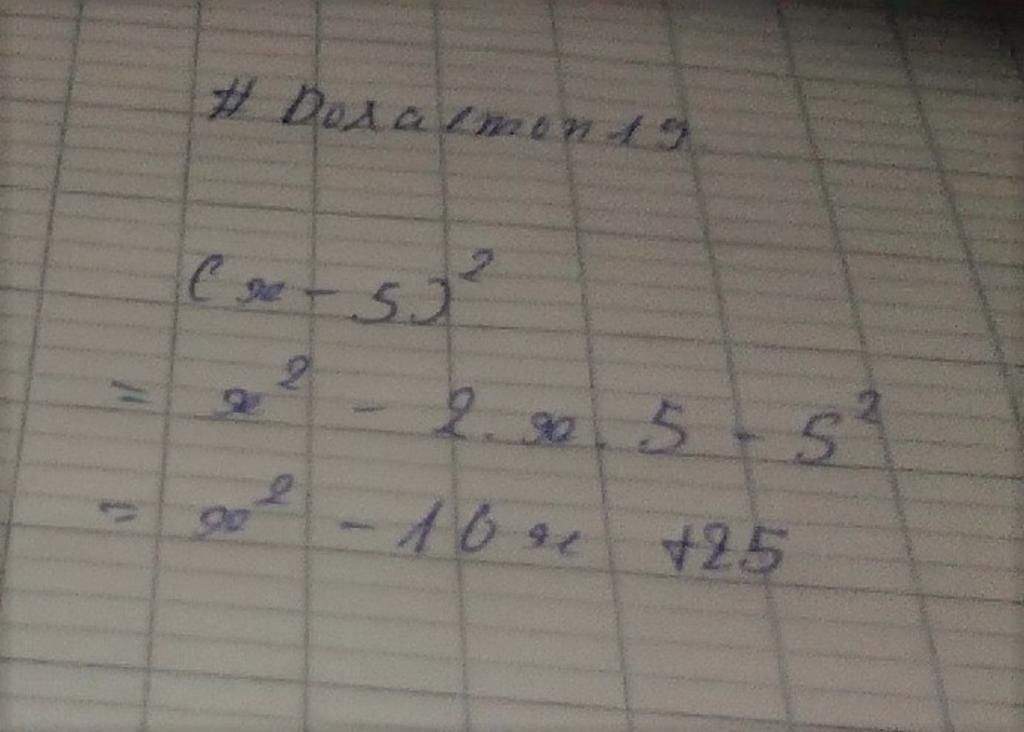 # Doxa(mon19
(x - 5)²
= x² - 2.x.5 - 5²
= x² - 10x +25